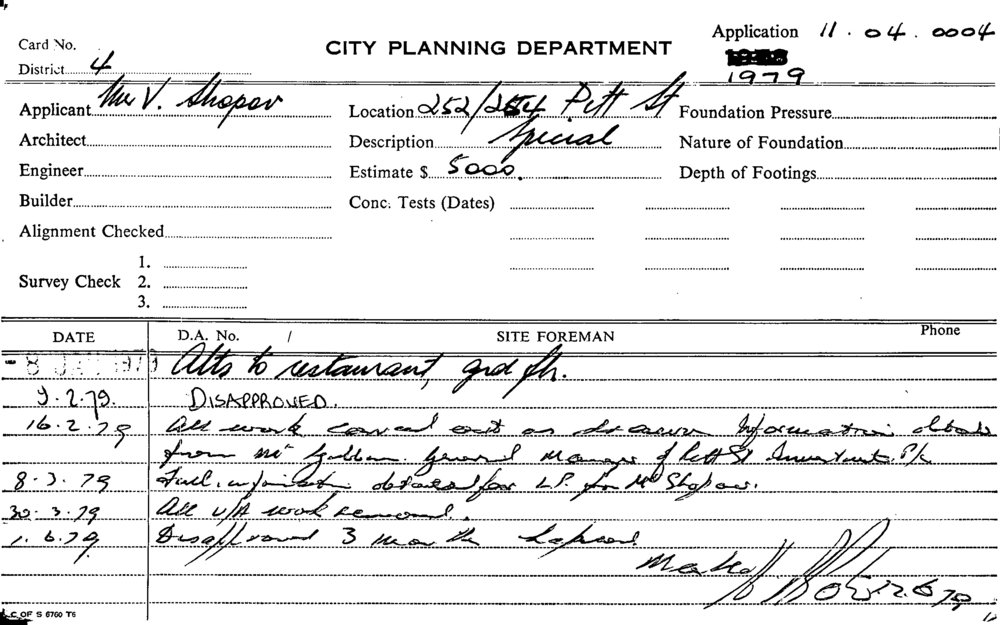 Application 11.04.0004
Card No. CITY PLANNING DEPARTMENT
District 4 1979
Applicant Mr V. Shopov Location 252/254 Pitt St Foundation Pressure
Architect Description Special Nature of Foundation
Engineer Estimate $ 5000. Depth of Footings
Builder Conc. Tests (Dates)
Alignment Checked
1.
Survey Check 2.
3.
DATE D.A. No. / SITE FOREMAN Phone
-8 JAN 1979 Alts to restaurant, grd flr.
9.2.79. DISAPPROVED.
16.2.79 All work carried out as drawn Information
from Mr General Manager of Pitt St Investments P/L
8.3.79 Full information for L.P. for Mr Shopov.
30.3.79 All U/A work removed.
1.6.79 Disapproved 3 months lapsed
.6.79
C OF S 6760 T6